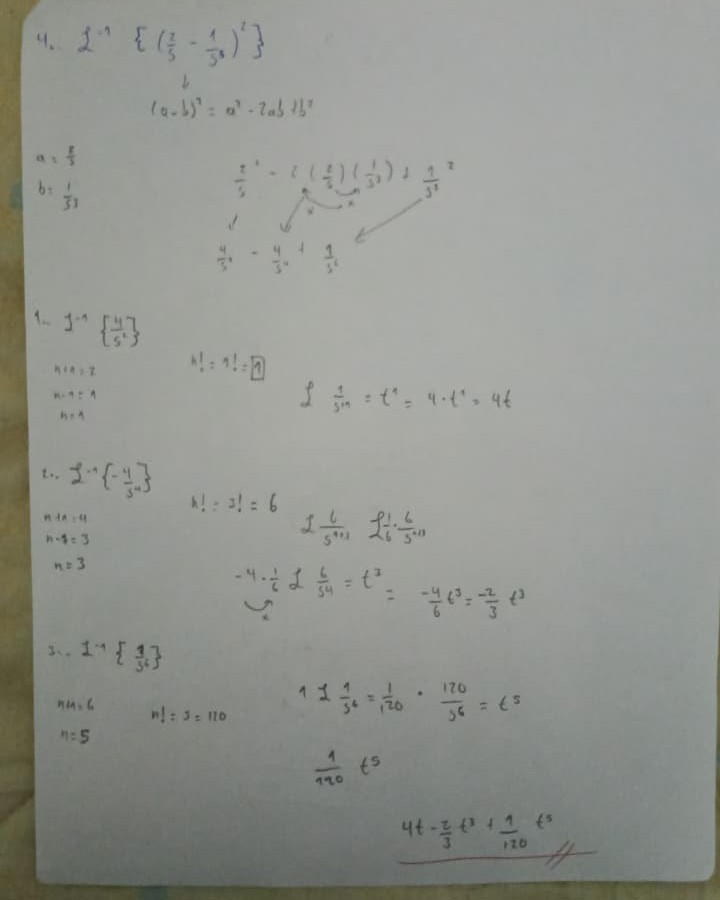 4. ℒ⁻¹ { (2/s - 1/s³)² }
(a-b)² = a² - 2ab + b²
a = 2/s
b = 1/s³
2/s ² - 2 (2/s) (1/s³) + 1/s³ ²
x x
4/s² - 4/s⁴ + 1/s⁶
1.. ℒ⁻¹ {4/s²}
n+1=2
n-1=1
n=1
n! = 1! = 1
ℒ 1/s¹⁺¹ = t¹ = 4·t¹ = 4t
2.. ℒ⁻¹ {-4/s⁴}
n+1=4
n-1=3
n=3
n! = 3! = 6
ℒ 6/sⁿ⁺¹ ℒ 1/6 · 6/sⁿ⁺¹
-4·1/6 ℒ 6/s4 = t³ = -4/6 t³ = -2/3 t³
x
3.. ℒ⁻¹ {1/s⁶}
n+1=6
n=5
n! = 5 = 120
1 ℒ 1/s⁶ = 1/120 · 120/s⁶ = t⁵
1/120 t⁵
4t - 2/3 t³ + 1/120 t⁵